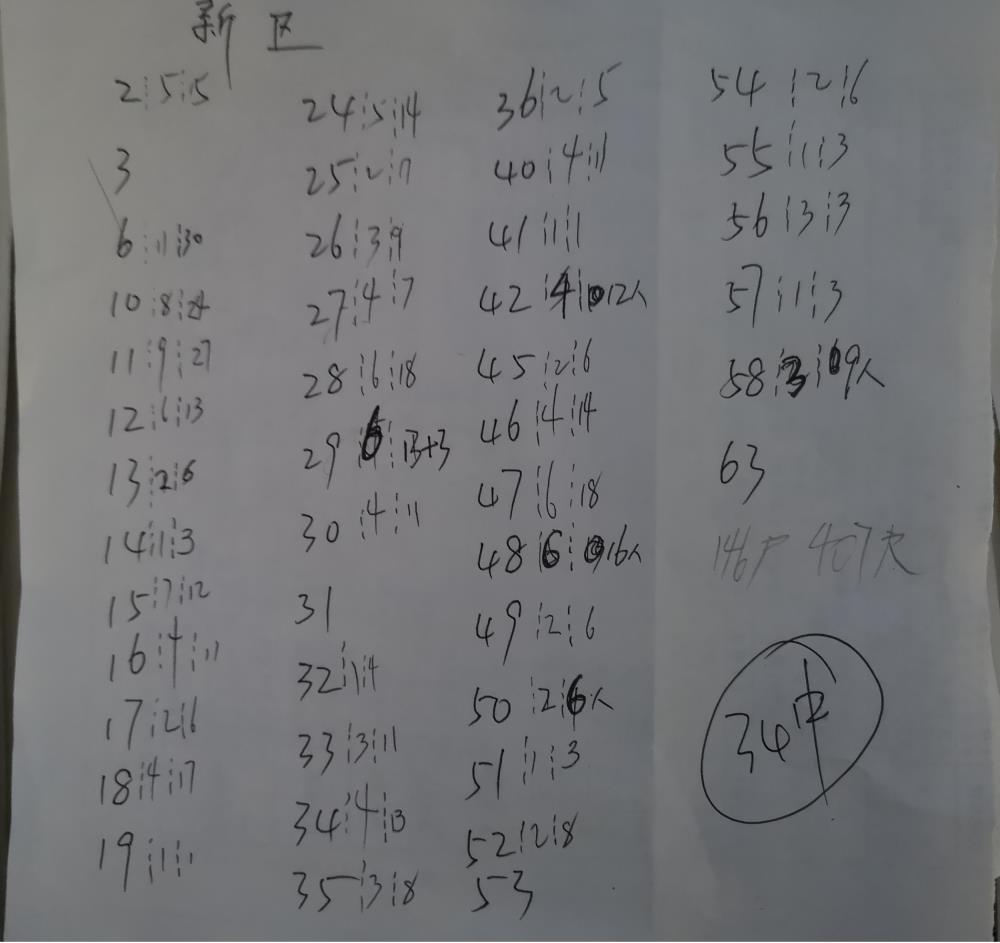 新区
2┊5┊15
3
6┊11┊30
10┊8┊24
11┊9┊27
12┊6┊13
13┊2┊6
14┊1┊3
15┊7┊12
16┊4┊11
17┊2┊6
18┊4┊17
19┊1┊1
24┊5┊14
25┊2┊7
26┊3┊9
27┊4┊7
28┊6┊18
29┊6┊13+3
30┊4┊11
31
32┊1┊4
33┊3┊11
34┊4┊13
35┊3┊8
36┊2┊5
40┊4┊11
41┊1┊1
42┊4┊12人
45┊2┊6
46┊4┊14
47┊6┊18
48┊6┊16人
49┊2┊6
50┊2┊6人
51┊1┊3
52┊2┊8
53
54┊2┊6
55┊1┊3
56┊3┊3
57┊1┊3
58┊3┊9人
63
146户 407人
34